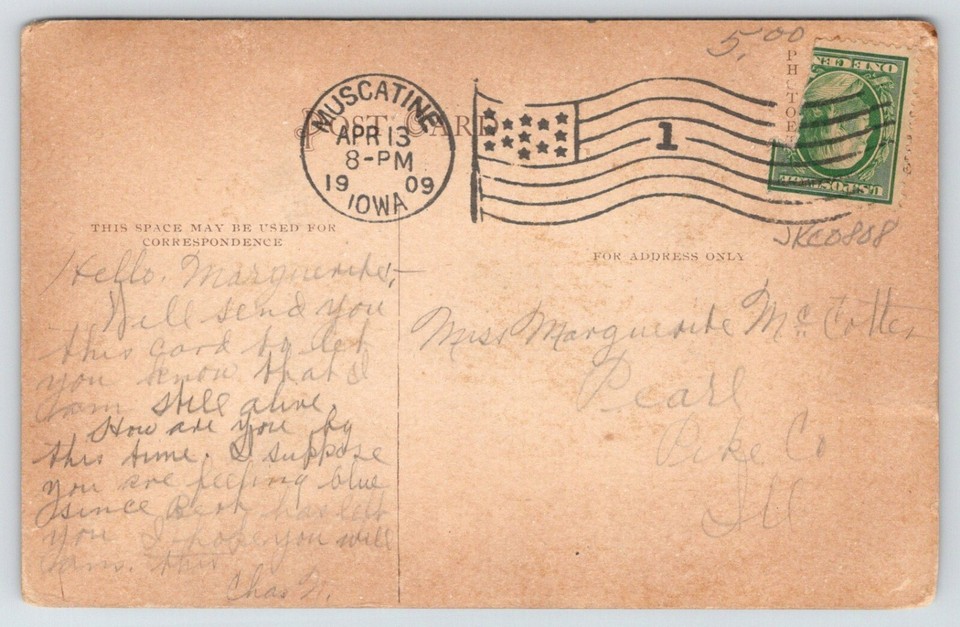 5.00
PHOTOET
ONE CEN
U.S. POSTAGE
MUSCATINE
APR 13
8-PM
19 09
IOWA
1
POST CARD
JKC0808
THIS SPACE MAY BE USED FOR
CORRESPONDENCE
FOR ADDRESS ONLY
Hello, Marguerite,-
Will send you
this card to let
you know that I
am still alive.
How are you by
this time. I suppose
you are feeling blue
since Bert has left
you I hope you will
ans. this.
Chas
Miss Marguerite McCotter
Pearl
Pike Co
Ill